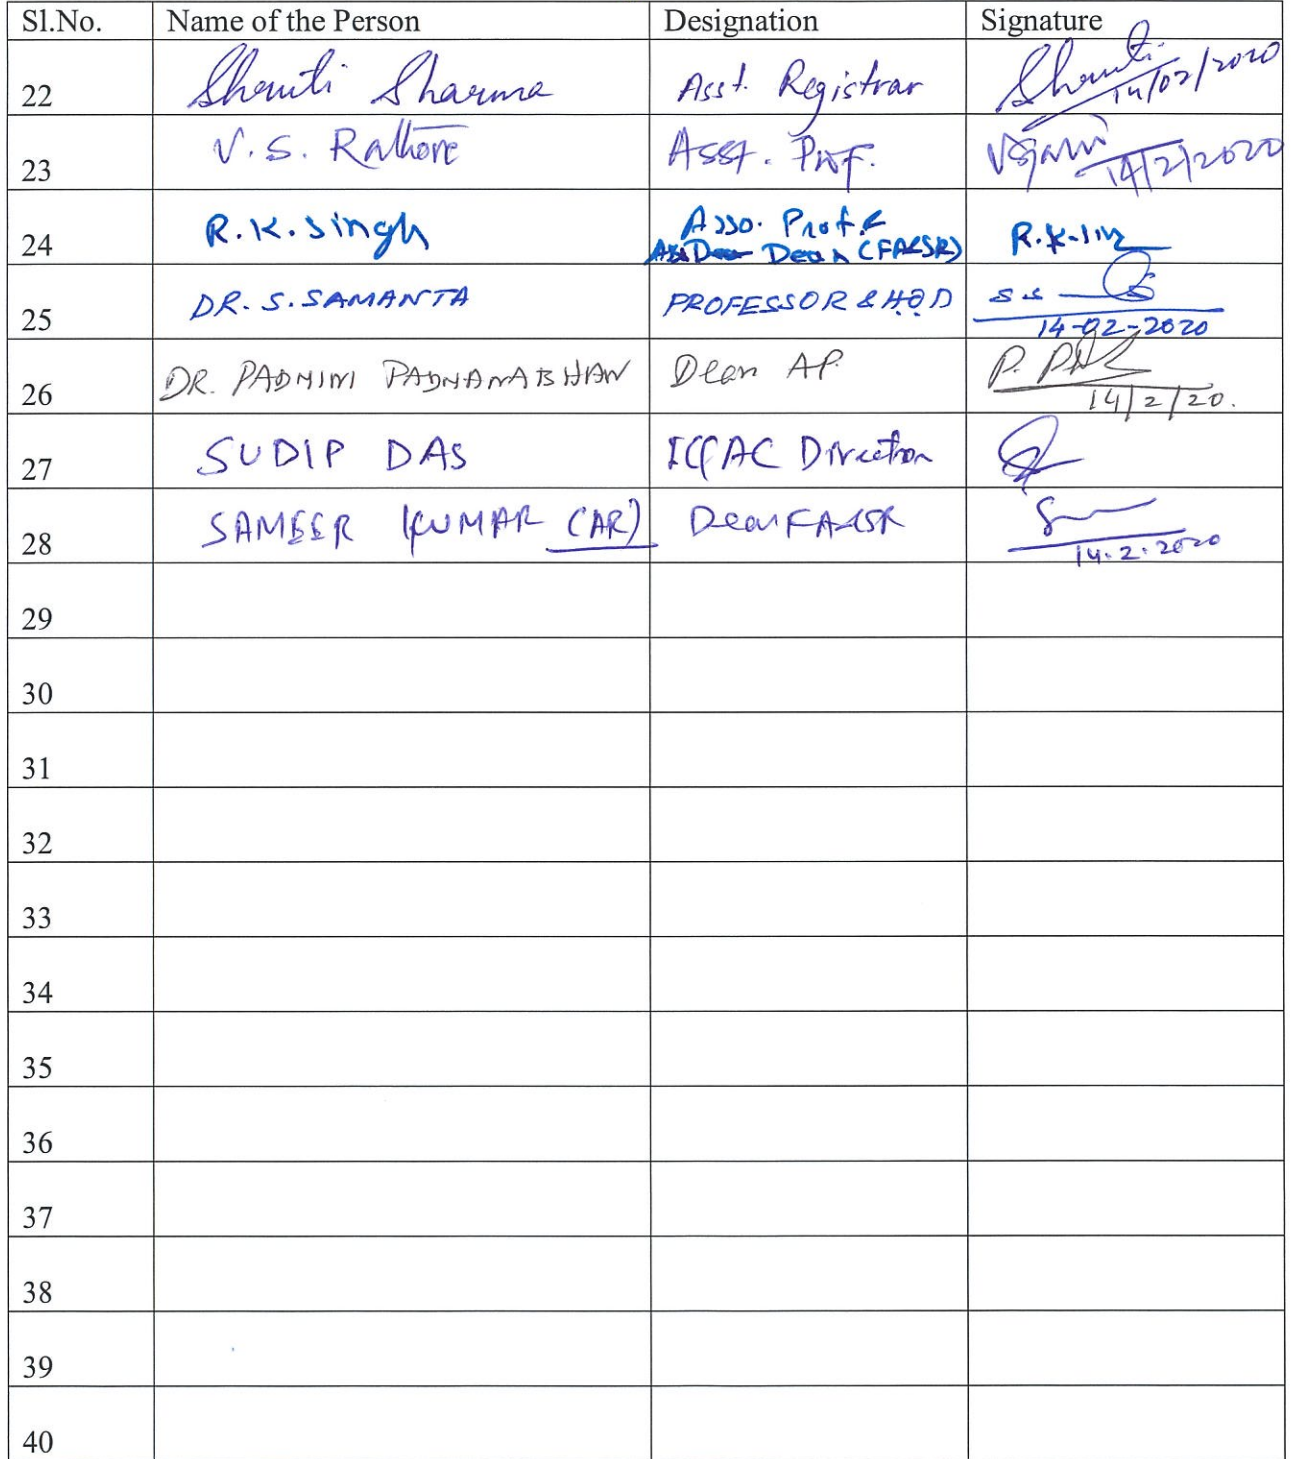 Sl.No. Name of the Person Designation Signature
22 Shruti Sharma Asst. Registrar Shruti 14/02/2020
23 V.S. Rathore Asst. Prof. 14/2/2020
24 R.K. Singh Asso. Prof. &
Dean (FA&SR) R.K.
25 DR. S. SAMANTA PROFESSOR & HOD S S
14-02-2020
26 DR. PADMINI PADMANABHAN Dean AP. P.
14/2/20.
27 SUDIP DAS
28 SAMEER KUMAR (AR) Dean FA&SR
14.2.2020
29
30
31
32
33
34
35
36
37
38
39
40